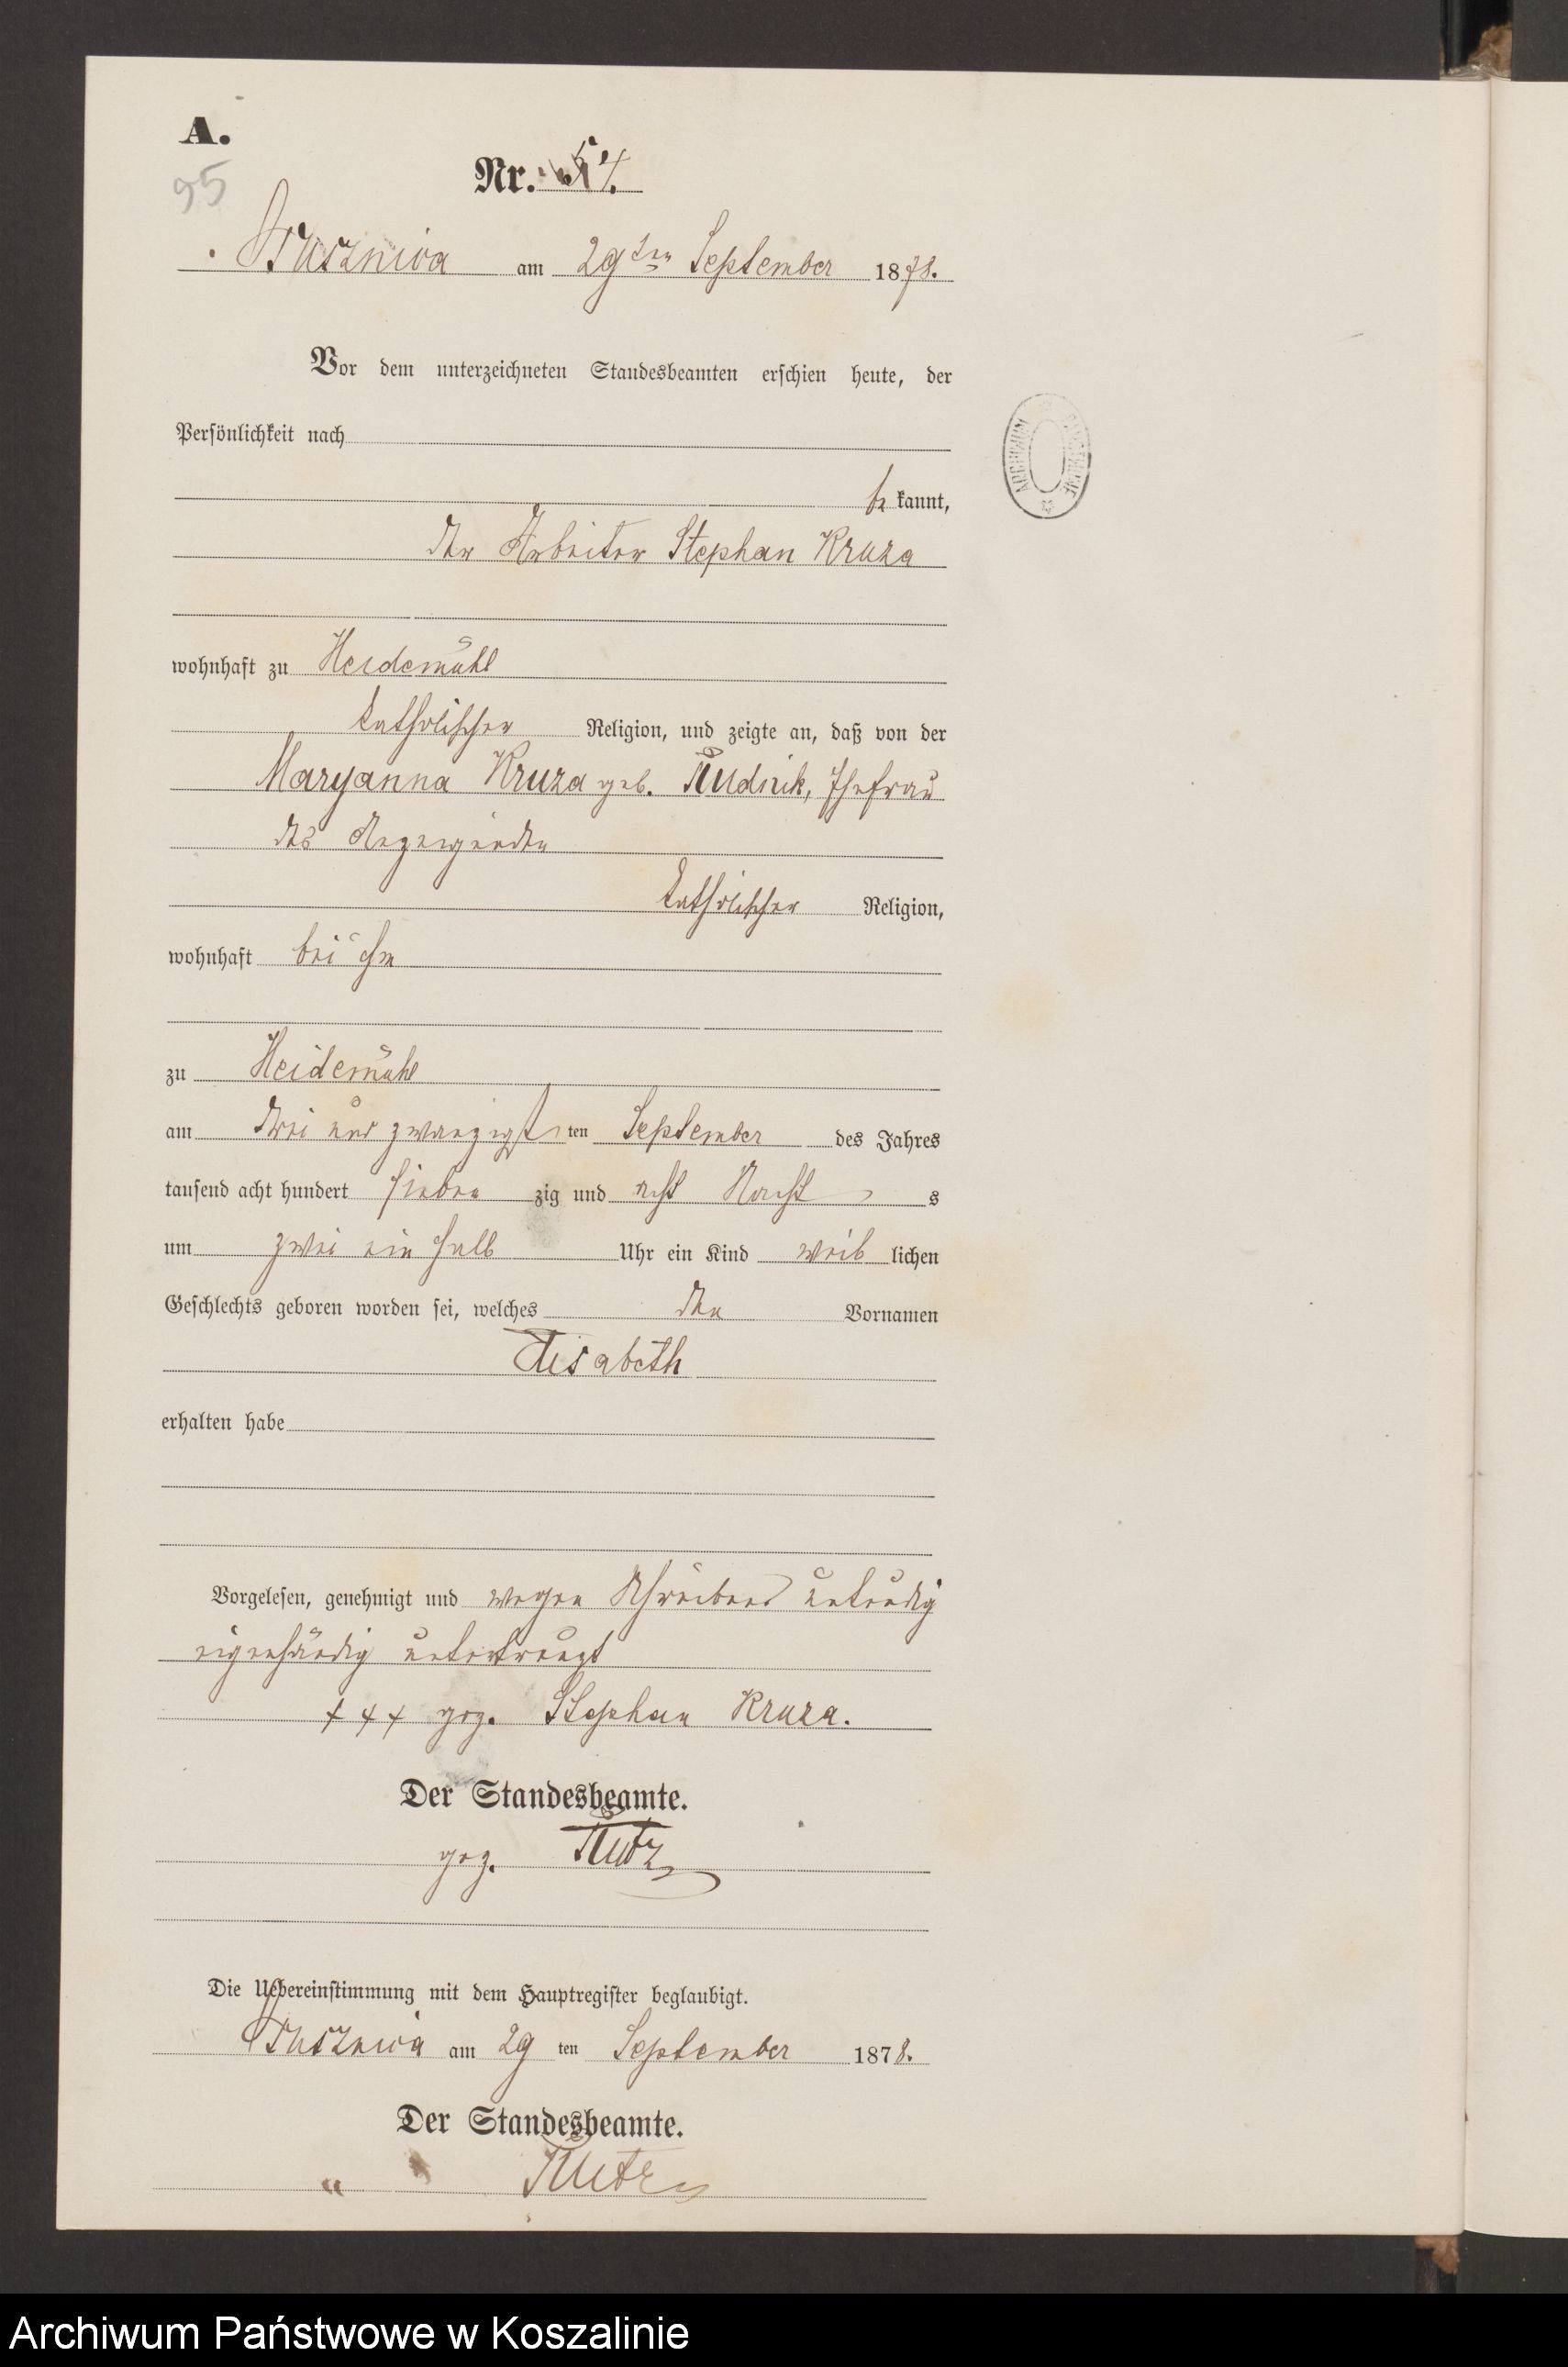 A.
95
Nr. 54.
am 29ten September 1878.
Vor dem unterzeichneten Standesbeamten erschien heute, der
Persönlichkeit nach
be kannt,
der Arbeiter Stephan Kruza
wohnhaft zu Heidemühl
katholischer Religion, und zeigte an, daß von der
Maryanna Kruza geb. Rudnik, Ehefrau
des Anzeigenden
katholischer Religion,
wohnhaft bei ihm
zu Heidemühl
am drei und zwanzigsten September des Jahres
tausend acht hundert sieben zig und acht Nacht s
um zwei ein halb Uhr ein Kind weib lichen
Geschlechts geboren worden sei, welches den Vornamen
Elisabeth
erhalten habe
Vorgelesen, genehmigt und wegen Schreibens
eigenhändig unterkreuzt
+++ gez. Stephan Kruza.
Der Standesbeamte.
gez.
Die Uebereinstimmung mit dem Hauptregister beglaubigt.
am 29 ten September 1878.
Der Standesbeamte.
ARCHIWUM PAŃSTWOWE
Archiwum Państwowe w Koszalinie